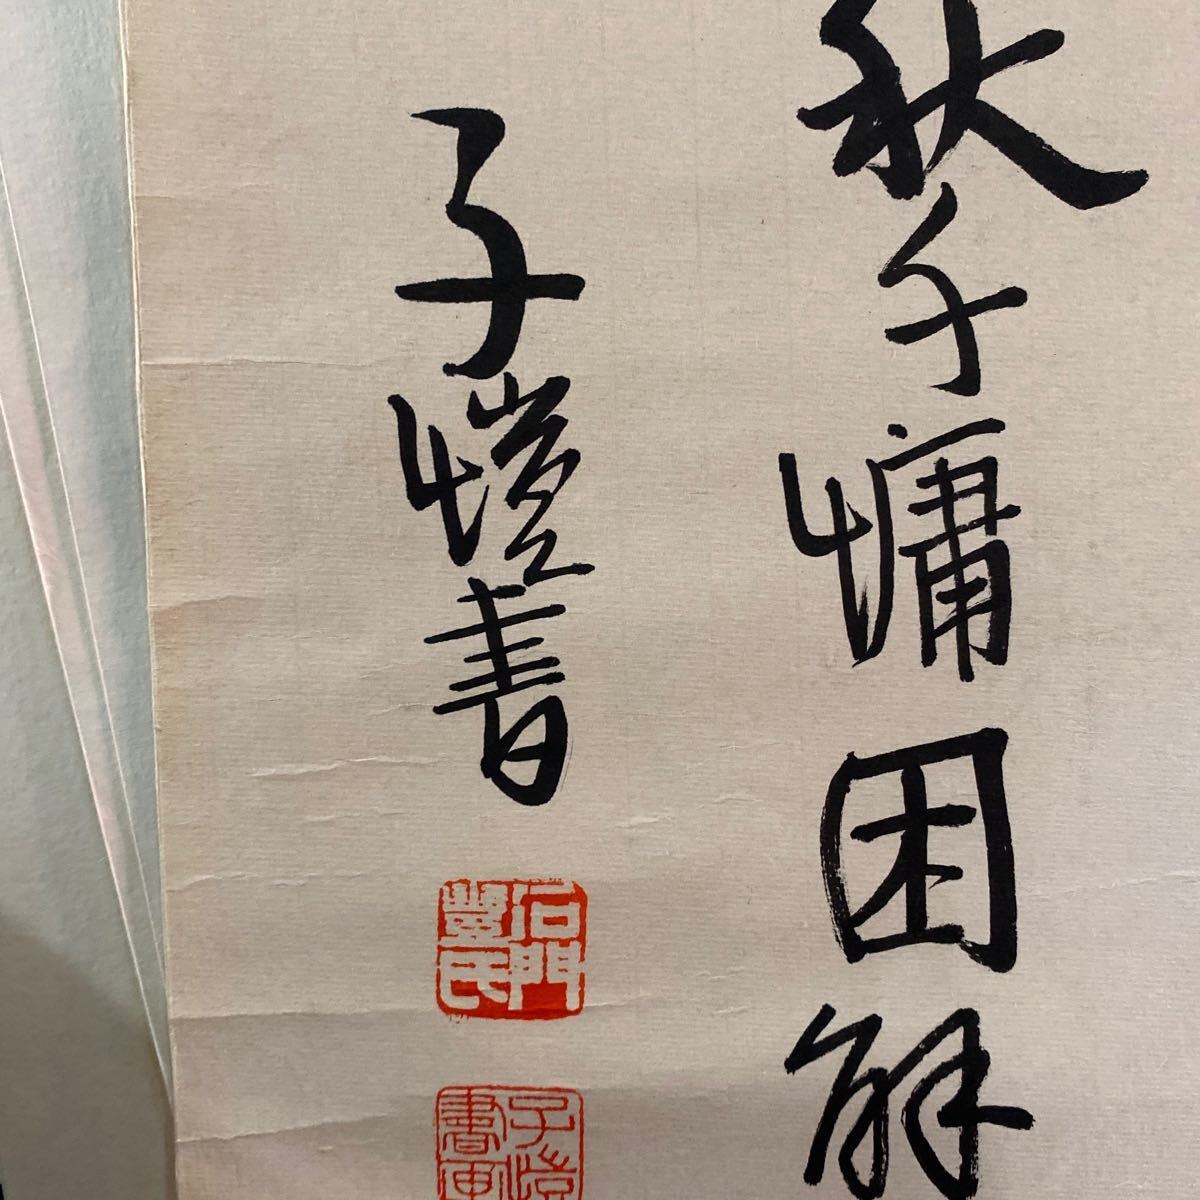 秋千慵困解
子愷書
石門豐氏
子愷書画